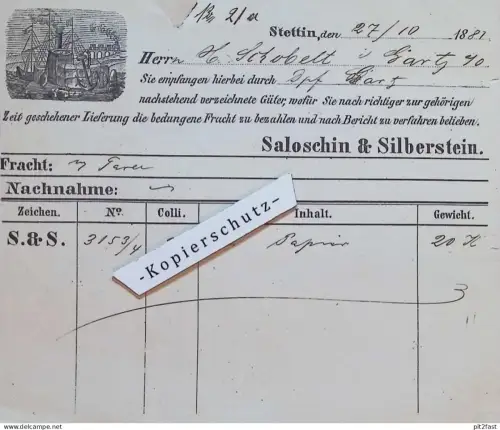 Stettin, den 27/10 1881
Herrn H. Schobelt i Gartz a/O.
Sie empfangen hierbei durch Dpf Gartz
nachstehend verzeichnete Güter, wofür Sie nach richtiger zur gehörigen
Zeit geschehener Lieferung die bedungene Fracht zu bezahlen und nach Bericht zu verfahren belieben.
Saloschin & Silberstein.
Fracht:
Nachnahme:
Zeichen. No. Colli. Inhalt. Gewicht.
S.&S. 3153/4 Papier 20 K
-Kopierschutz-
www.delcampe.net
pit2fast